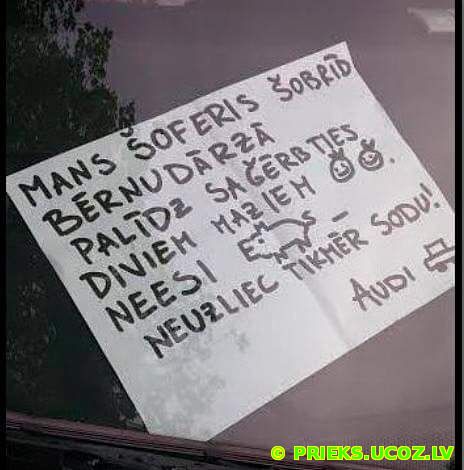 MANS ŠOFERIS ŠOBRĪD
BĒRNUDĀRZĀ
PALĪDZ SAĢĒRBTIES
DIVIEM MAZIEM
NEESI
NEUZLIEC TIKMĒR SODU!
AUDI
© PRIEKS.UCOZ.LV